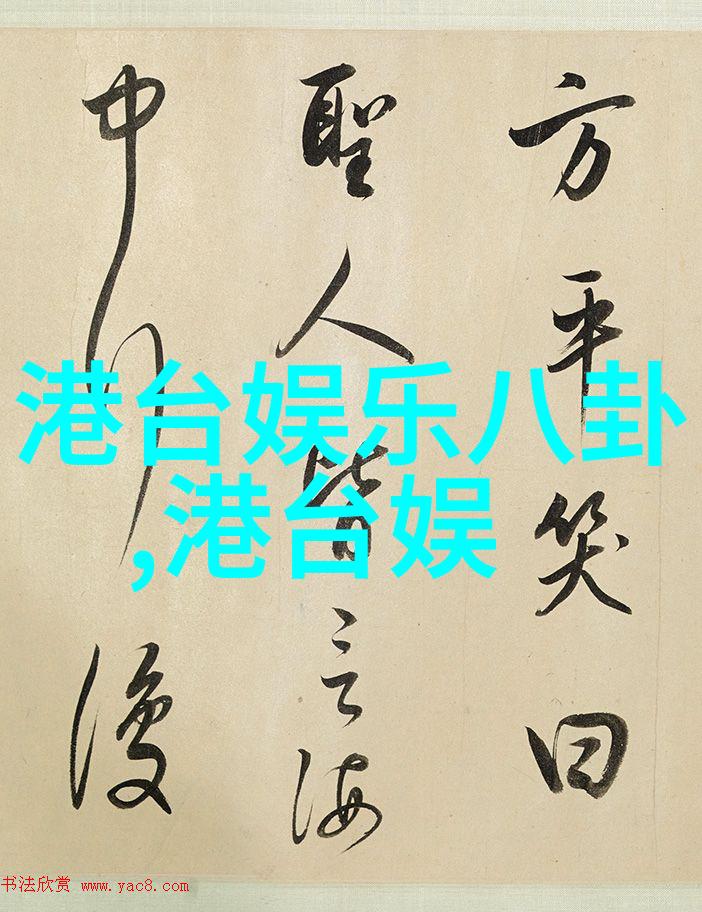 方平笑曰
聖人皆言海
中行復
港台娱乐八卦
,港台娱
书法欣赏 www.yac8.com